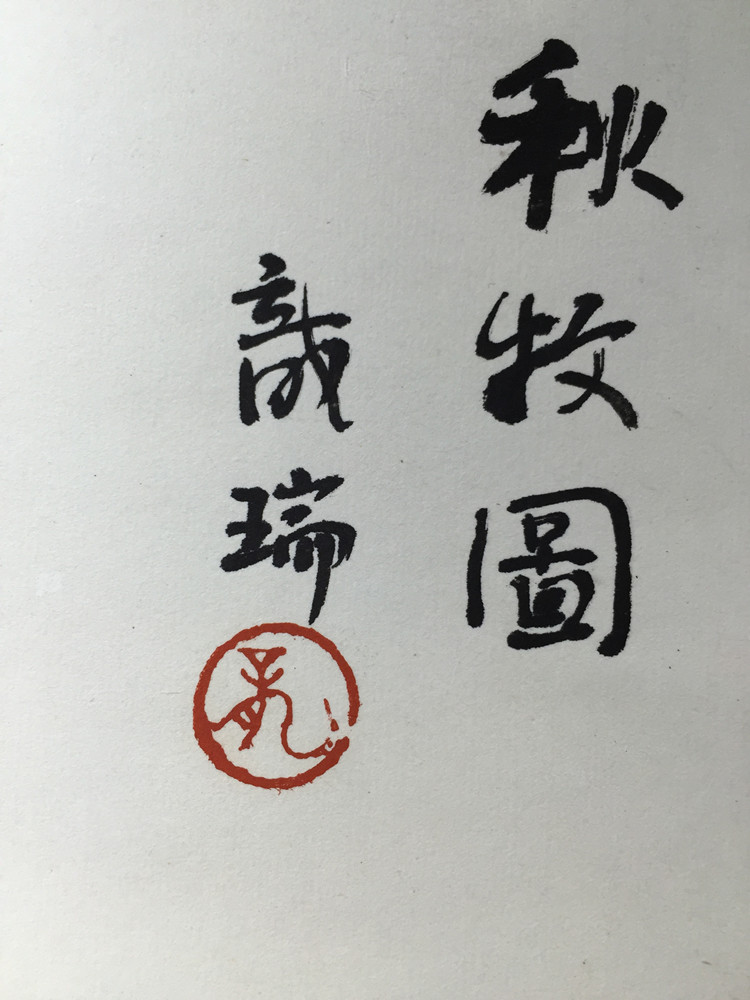 秋牧圖
龍瑞